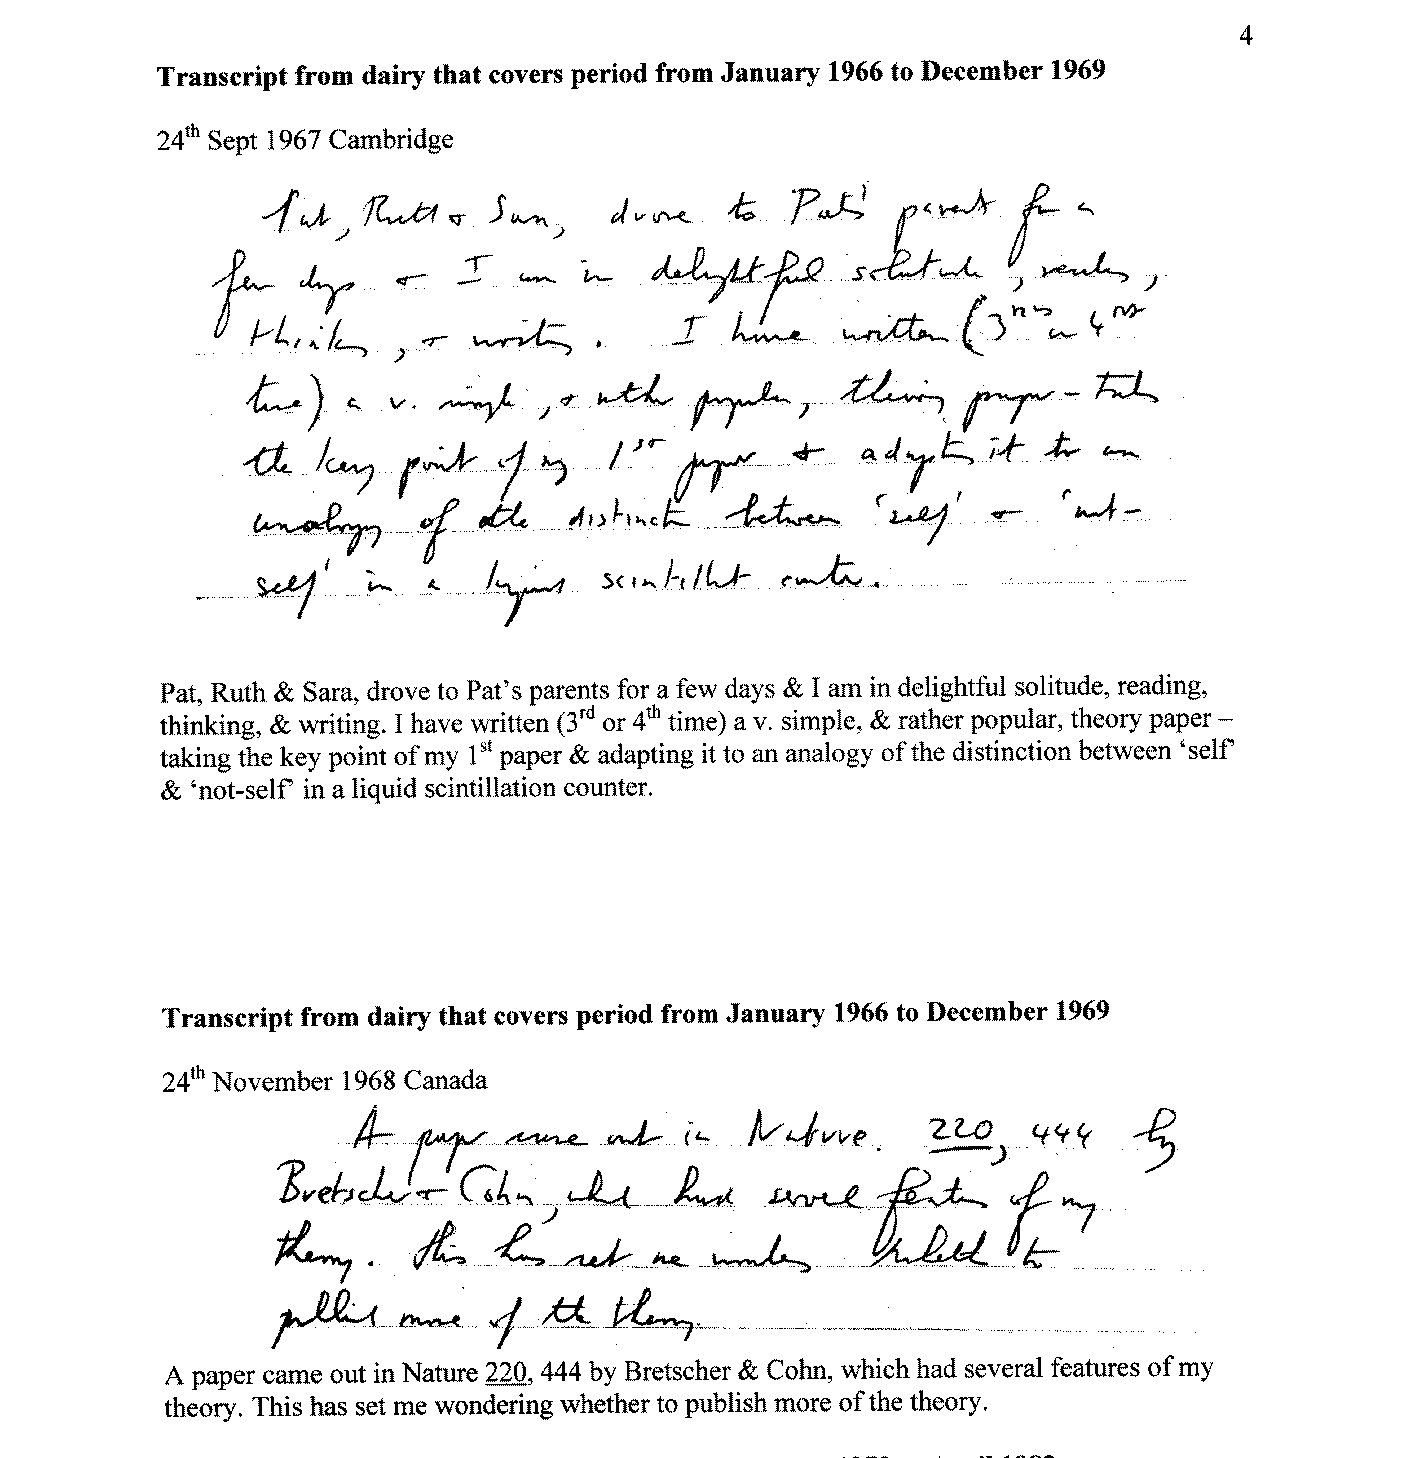 4
Transcript from dairy that covers period from January 1966 to December 1969
24th Sept 1967 Cambridge
Pat, Ruth & Sara, drove to Pat's parents for a
few days & I am in delightful solitude, reading,
thinking, & writing. I have written (3rd or 4th
time) a v. simple, & rather popular, theory paper – taking
the key point of my 1st paper & adapting it to an
analogy of the distinction between 'self' & 'not-
self' in a liquid scintillation counter.
Pat, Ruth & Sara, drove to Pat's parents for a few days & I am in delightful solitude, reading,
thinking, & writing. I have written (3rd or 4th time) a v. simple, & rather popular, theory paper –
taking the key point of my 1st paper & adapting it to an analogy of the distinction between 'self'
& 'not-self' in a liquid scintillation counter.
Transcript from dairy that covers period from January 1966 to December 1969
24th November 1968 Canada
A paper came out in Nature. 220, 444 by
Bretscher & Cohn, which had several features of my
theory. This has set me wondering whether to
publish more of the theory.
A paper came out in Nature 220, 444 by Bretscher & Cohn, which had several features of my
theory. This has set me wondering whether to publish more of the theory.